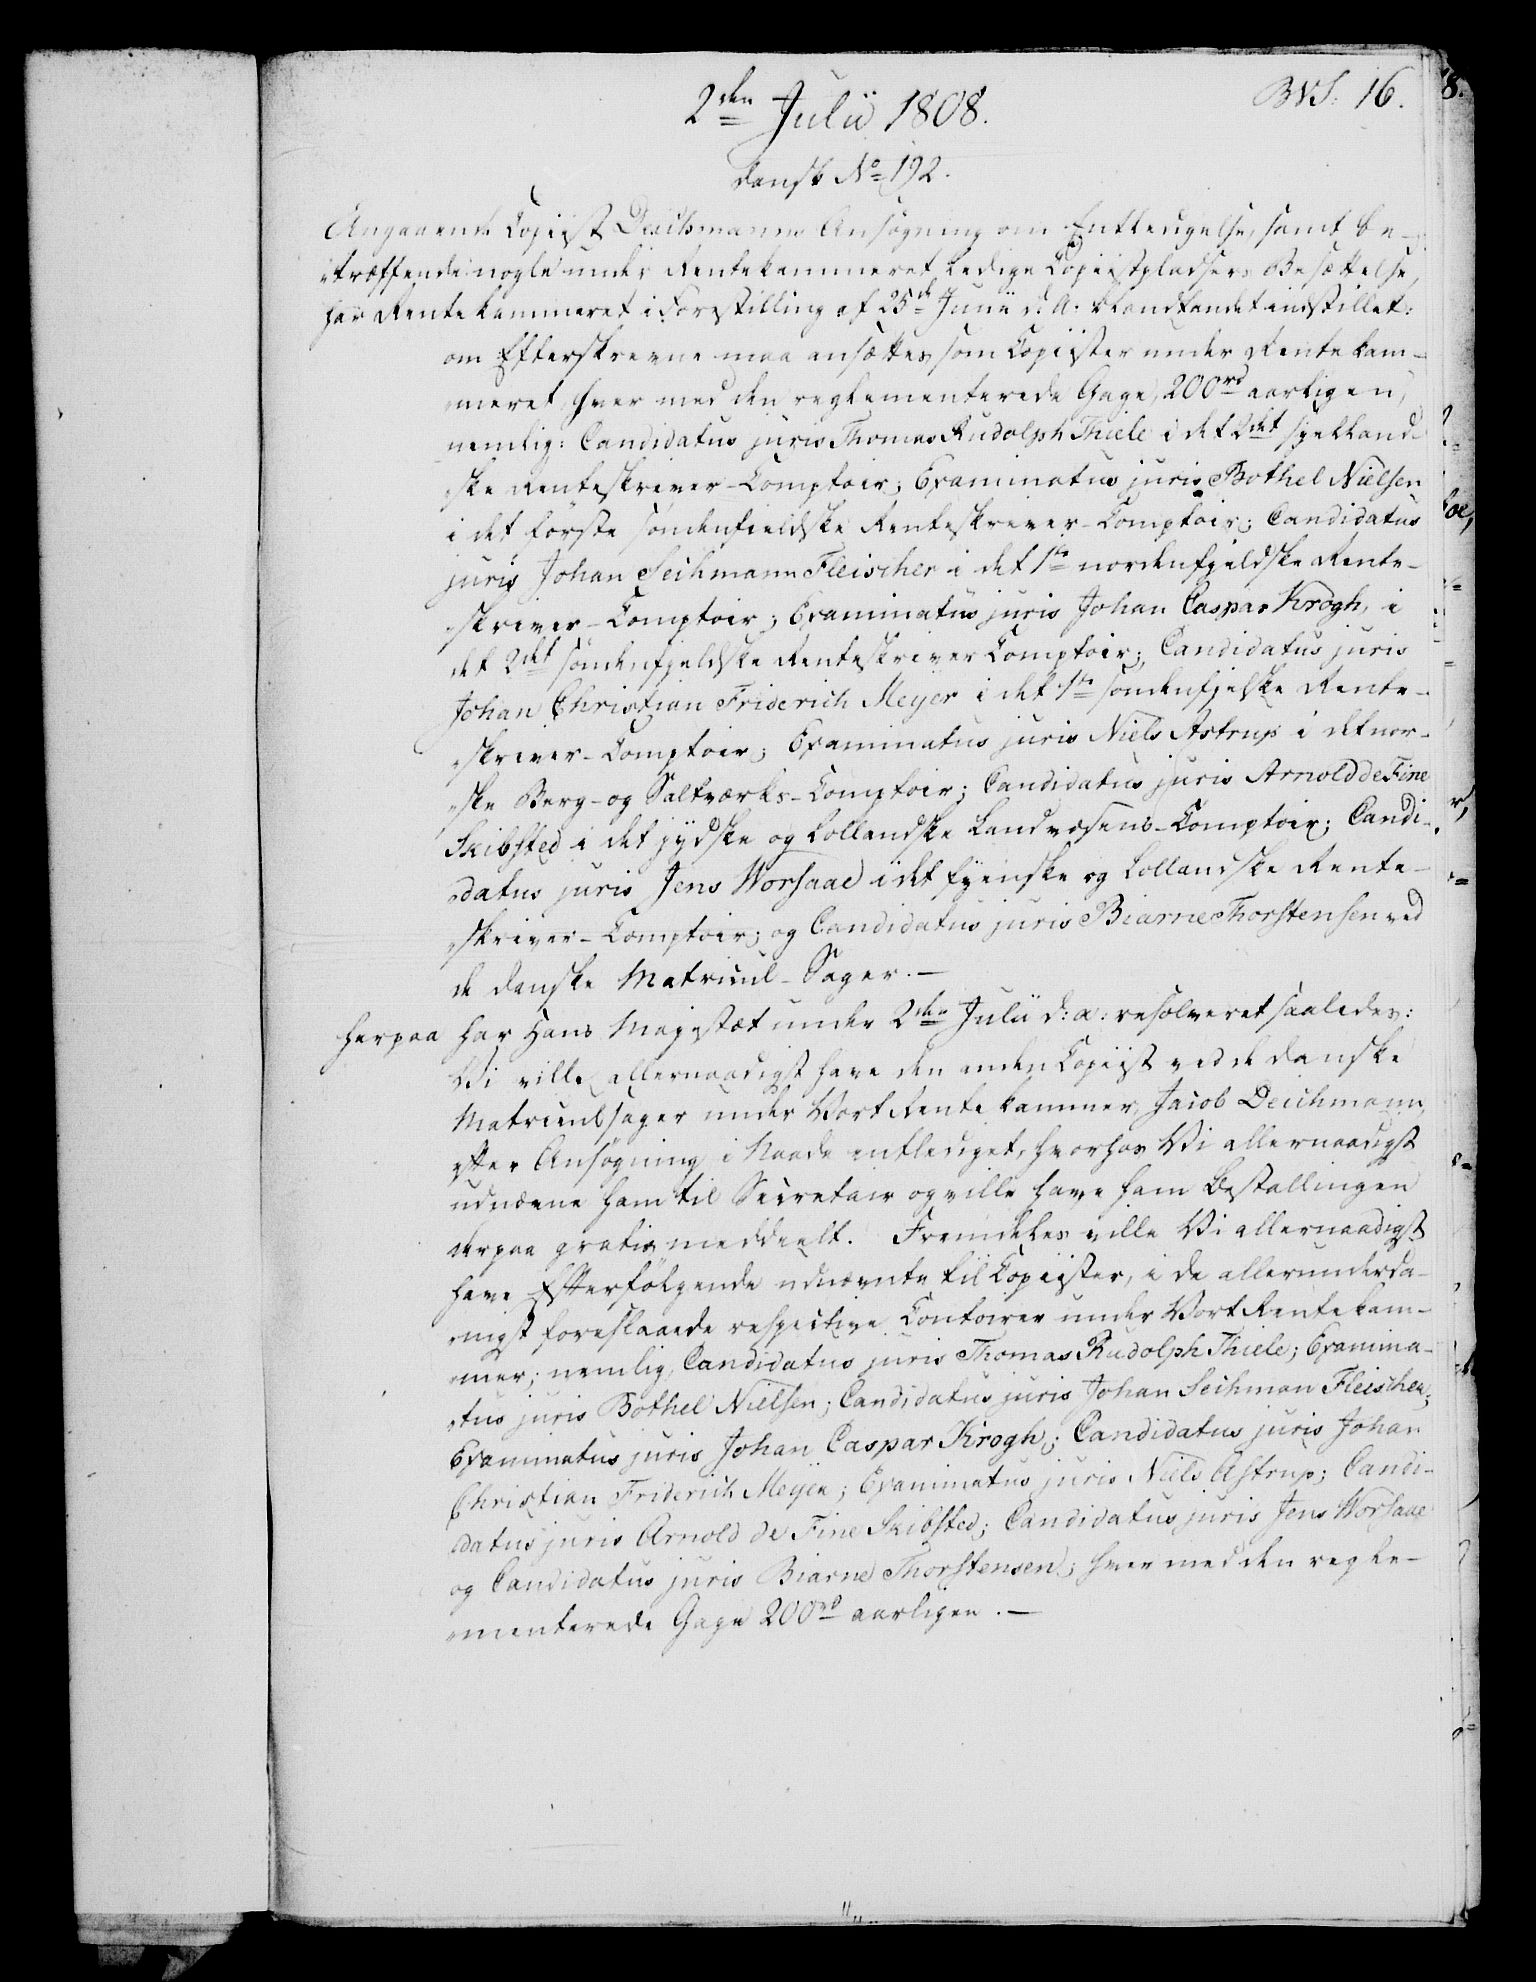 2den Julii 1808.
BVS: 16.
dansk No 192.
Angaaende Copiist Deichmanns Ansøgning om Entledigelse, samt be-
træffende nogle under Rentekammeret ledige Copiistpladsers Besættelse,
har Rentekammeret i Forestilling af 25de Junii d: A: indstillet:
om Efterskrevne maa ansættes som Copiister under Rentekam-
meret, hver med den reglementerede Gage, 200rd aarligen,
nemlig: Candidatus juris Thomas Rudolph Thiele i det 2det sjelland-
ske Renteskriver-Comptoir; Examinatus juris Bothel Nielsen
i det første søndenfieldske Renteskriver-Comptoir; Candidatus
juris Johan Seihmann Fleischer i det 1ste nordenfjeldske Rente-
skriver-Comptoir; Examinatus juris Johan Caspar Krogh, i
det 2det søndenfjeldske Renteskriver Comptoir; Candidatus juris
Johan Christian Friderich Meyer i det 1ste søndenfjelske Rente-
skriver-Comptoir; Examinatus juris Niels Astrup i det nor-
ske Berg- og Saltværks-Comptoir; Candidatus juris Arnold de Fine
Skibsted i det jydske og Lollandske Landvæsens-Comptoir; Candi-
datus juris Jens Worsaae i det fyenske og Lollandske Rente-
skriver-Comptoir; og Candidatus juris Biarne Thorstensen ved
de danske Matricul-Sager.-
Herpaa har Hans Majestæt under 2den Julii d: a: resolveret saaledes:
Vi ville allernaadigst have den anden Copiist ved de danske
Matriculsager under Vort Rentekammer, Jacob Deichmann,
efter Ansøgning i Naade entlediget, hvorhos Vi allernaadigst
udnævne ham til Secretair og ville have ham Bestallingen
derpaa gratis meddeelt. Fremdeles ville Vi allernaadigst
have Efterfølgende udnævnte til Copiister, i de allerunderda-
nigst foreslaaede respective Contoirer under Vort Rentekam-
mer; nemlig, Candidatus juris Thomas Rudolph Thiele; Examina-
tus juris Bothel Nielsen; Candidatus juris Johan Seihman Fleischer;
Examinatus juris Johan Caspar Krogh; Candidatus juris Johan
Christian Friderich Meyer; Examinatus juris Niels Astrup; Candi-
datus juris Arnold de Fine Skibsted; Candidatus juris Jens Worsaae
og Candidatus juris Biarne Thorstensen; hver med den regle-
menterede Gage 200rd aarligen.-